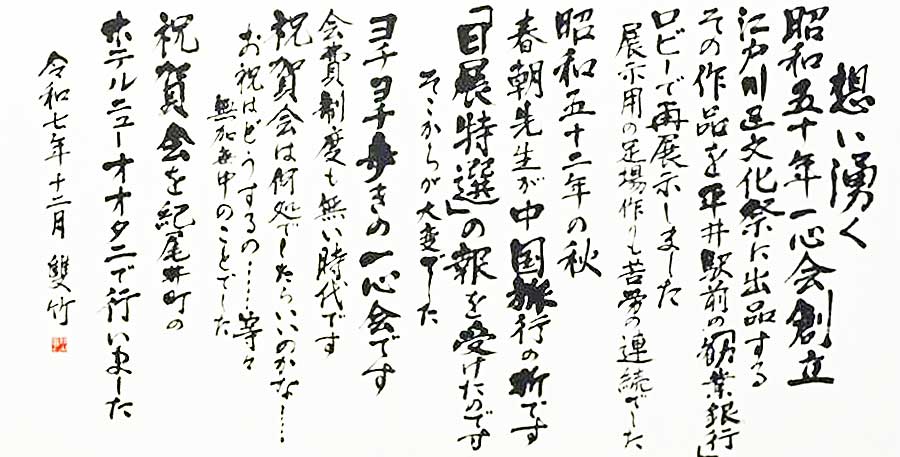 想い湧く
昭和五十年一心会創立
江戸川区文化祭に出品する
その作品を平井駅前の「勧業銀行」
ロビーで再展示しました
展示用の足場作りも苦労の連続でした
昭和五十二年の秋
春朝先生が中国旅行の折です
「日展特選」の報を受けたのです
そこからが大変でした
ヨチヨチ歩きの一心会です
会費制度も無い時代です
祝賀会は何処でしたらいいのかな……
お祝はどうするの……等々
無我夢中のことでした
祝賀会を紀尾井町の
ホテルニューオオタニで行いました
令和七年十二月 雙竹